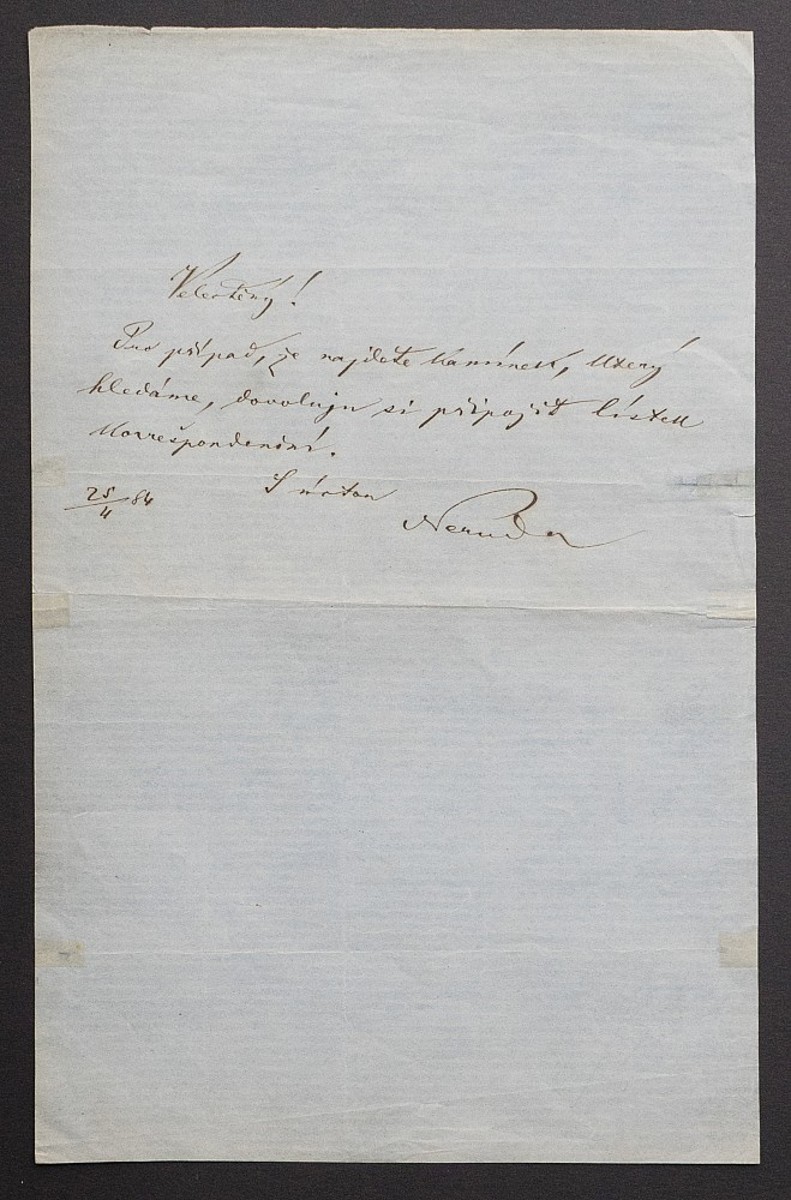 Velectěný!
Pro případ, že najdete kamínek, který
hledáme, dovoluju si připojit lístek
korrešpondenční.
S úctou
25/4 84
Neruda